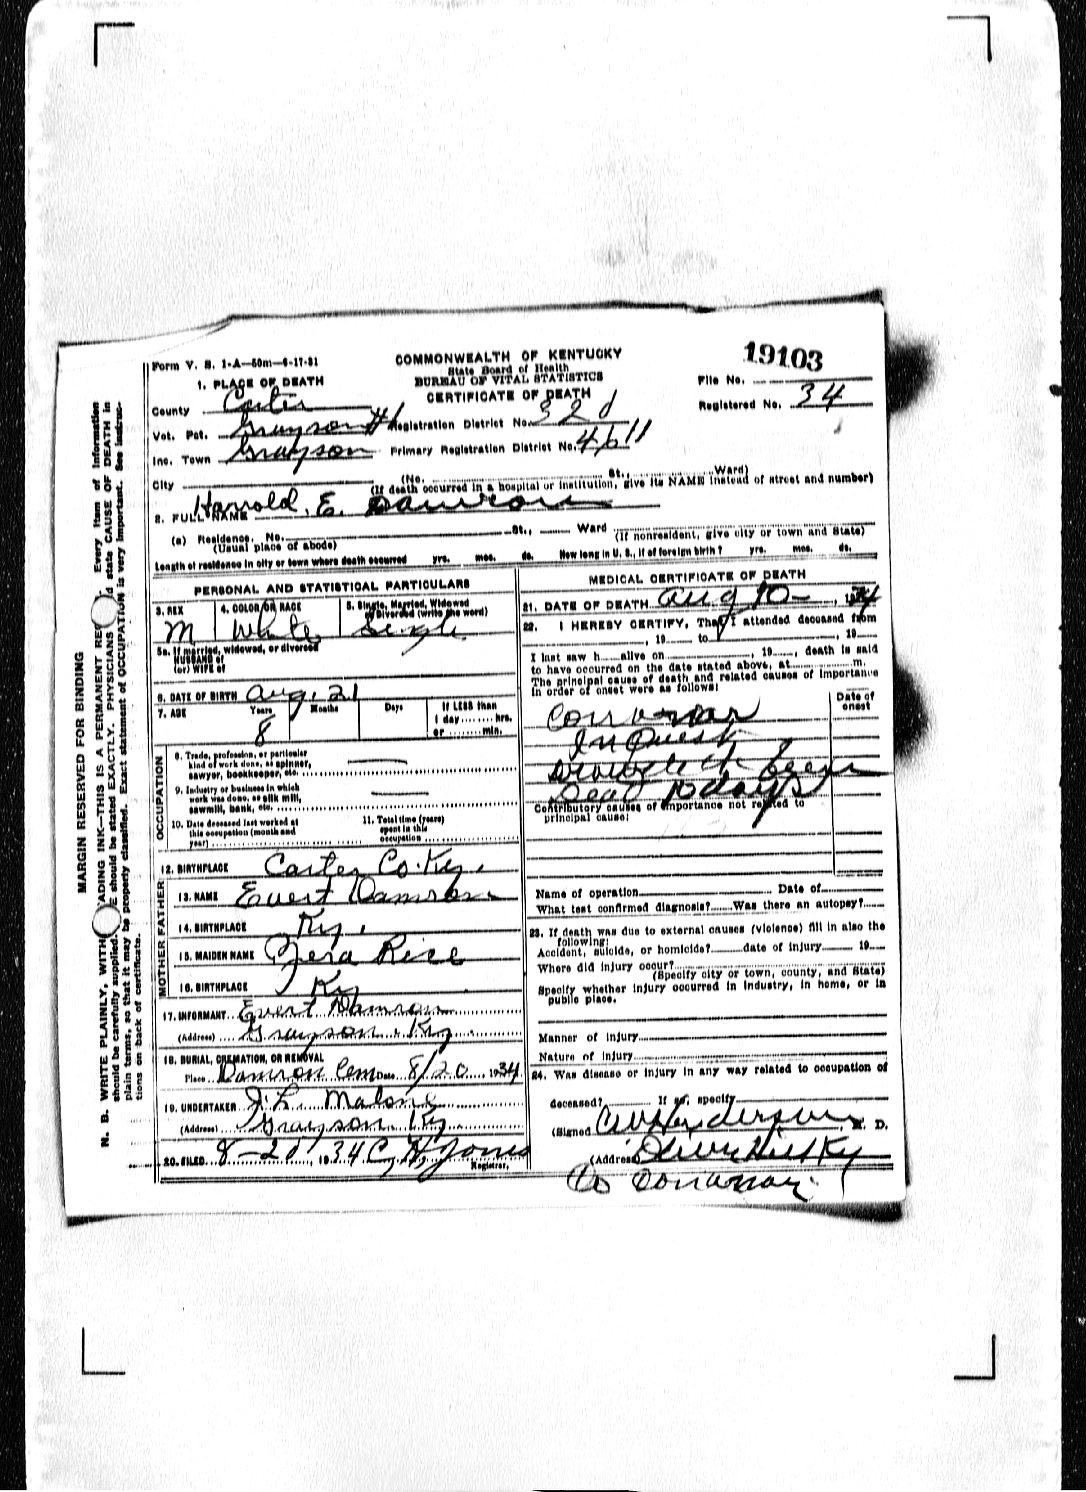 Form V. S. 1-A—50m—6-17-31
COMMONWEALTH OF KENTUCKY
State Board of Health
BUREAU OF VITAL STATISTICS
CERTIFICATE OF DEATH
19103
File No.
Registered No. 34
1. PLACE OF DEATH
County Carter
Vot. Pct. Grayson #1 Registration District No. 320
Inc. Town Grayson Primary Registration District No. 4611
City (No. St., Ward)
(If death occurred in a hospital or institution, give its NAME instead of street and number)
2. FULL NAME Harrold. E. Damron
(a) Residence. No. St., Ward (If nonresident, give city or town and State)
(Usual place of abode)
Length of residence in city or town where death occurred yrs. mos. ds. How long in U. S., if of foreign birth? yrs. mos. ds.
PERSONAL AND STATISTICAL PARTICULARS
3. SEX 4. COLOR OR RACE 5. Single, Married, Widowed or Divorced (write the word)
M White Single
5a. If married, widowed, or divorced
HUSBAND of
(or) WIFE of
6. DATE OF BIRTH Aug. 21
7. AGE Years Months Days If LESS than
1 day ........ hrs.
or ........ min.
8
OCCUPATION
8. Trade, profession, or particular
kind of work done, as spinner,
sawyer, bookkeeper, etc.
9. Industry or business in which
work was done, as silk mill,
sawmill, bank, etc.
10. Date deceased last worked at
this occupation (month and
year)
11. Total time (years)
spent in this
occupation
12. BIRTHPLACE Carter Co. Ky.
FATHER
13. NAME Evert Damron
14. BIRTHPLACE Ky.
MOTHER
15. MAIDEN NAME Zera Rice
16. BIRTHPLACE Ky
17. INFORMANT Evert Damron
(Address) Grayson. Ky
18. BURIAL, CREMATION, OR REMOVAL
Place Damron Cem Date 8/20 1934
19. UNDERTAKER J. L. Malone
(Address) Grayson Ky.
20. FILED 8-20 1934 C. H. Jones
Registrar.
MEDICAL CERTIFICATE OF DEATH
21. DATE OF DEATH Aug 10 - , 1934
22. I HEREBY CERTIFY, That I attended deceased from
, 19 to , 19
I last saw h alive on , 19 , death is said
to have occurred on the date stated above, at m.
The principal cause of death and related causes of importance
in order of onset were as follows:
Date of
onset
Inquest
been
Dead 10 days
Contributory causes of importance not related to
principal cause:
Name of operation Date of
What test confirmed diagnosis? Was there an autopsy?
23. If death was due to external causes (violence) fill in also the
following:
Accident, suicide, or homicide? date of injury 19
Where did injury occur?
(Specify city or town, county, and State)
Specify whether injury occurred in industry, in home, or in
public place.
Manner of injury
Nature of injury
24. Was disease or injury in any way related to occupation of
deceased? If so, specify
(Signed Henderson, M. D.
(Address Olive Hill Ky
Co
MARGIN RESERVED FOR BINDING
N. B. WRITE PLAINLY, WITH ADING INK—THIS IS A PERMANENT REC . Every item of information
should be carefully supplied. E should be stated EXACTLY. PHYSICIANS d state CAUSE OF DEATH in
plain terms, so that it may be properly classified. Exact statement of OCCUPATION is very important. See instruc-
tions on back of certificate.